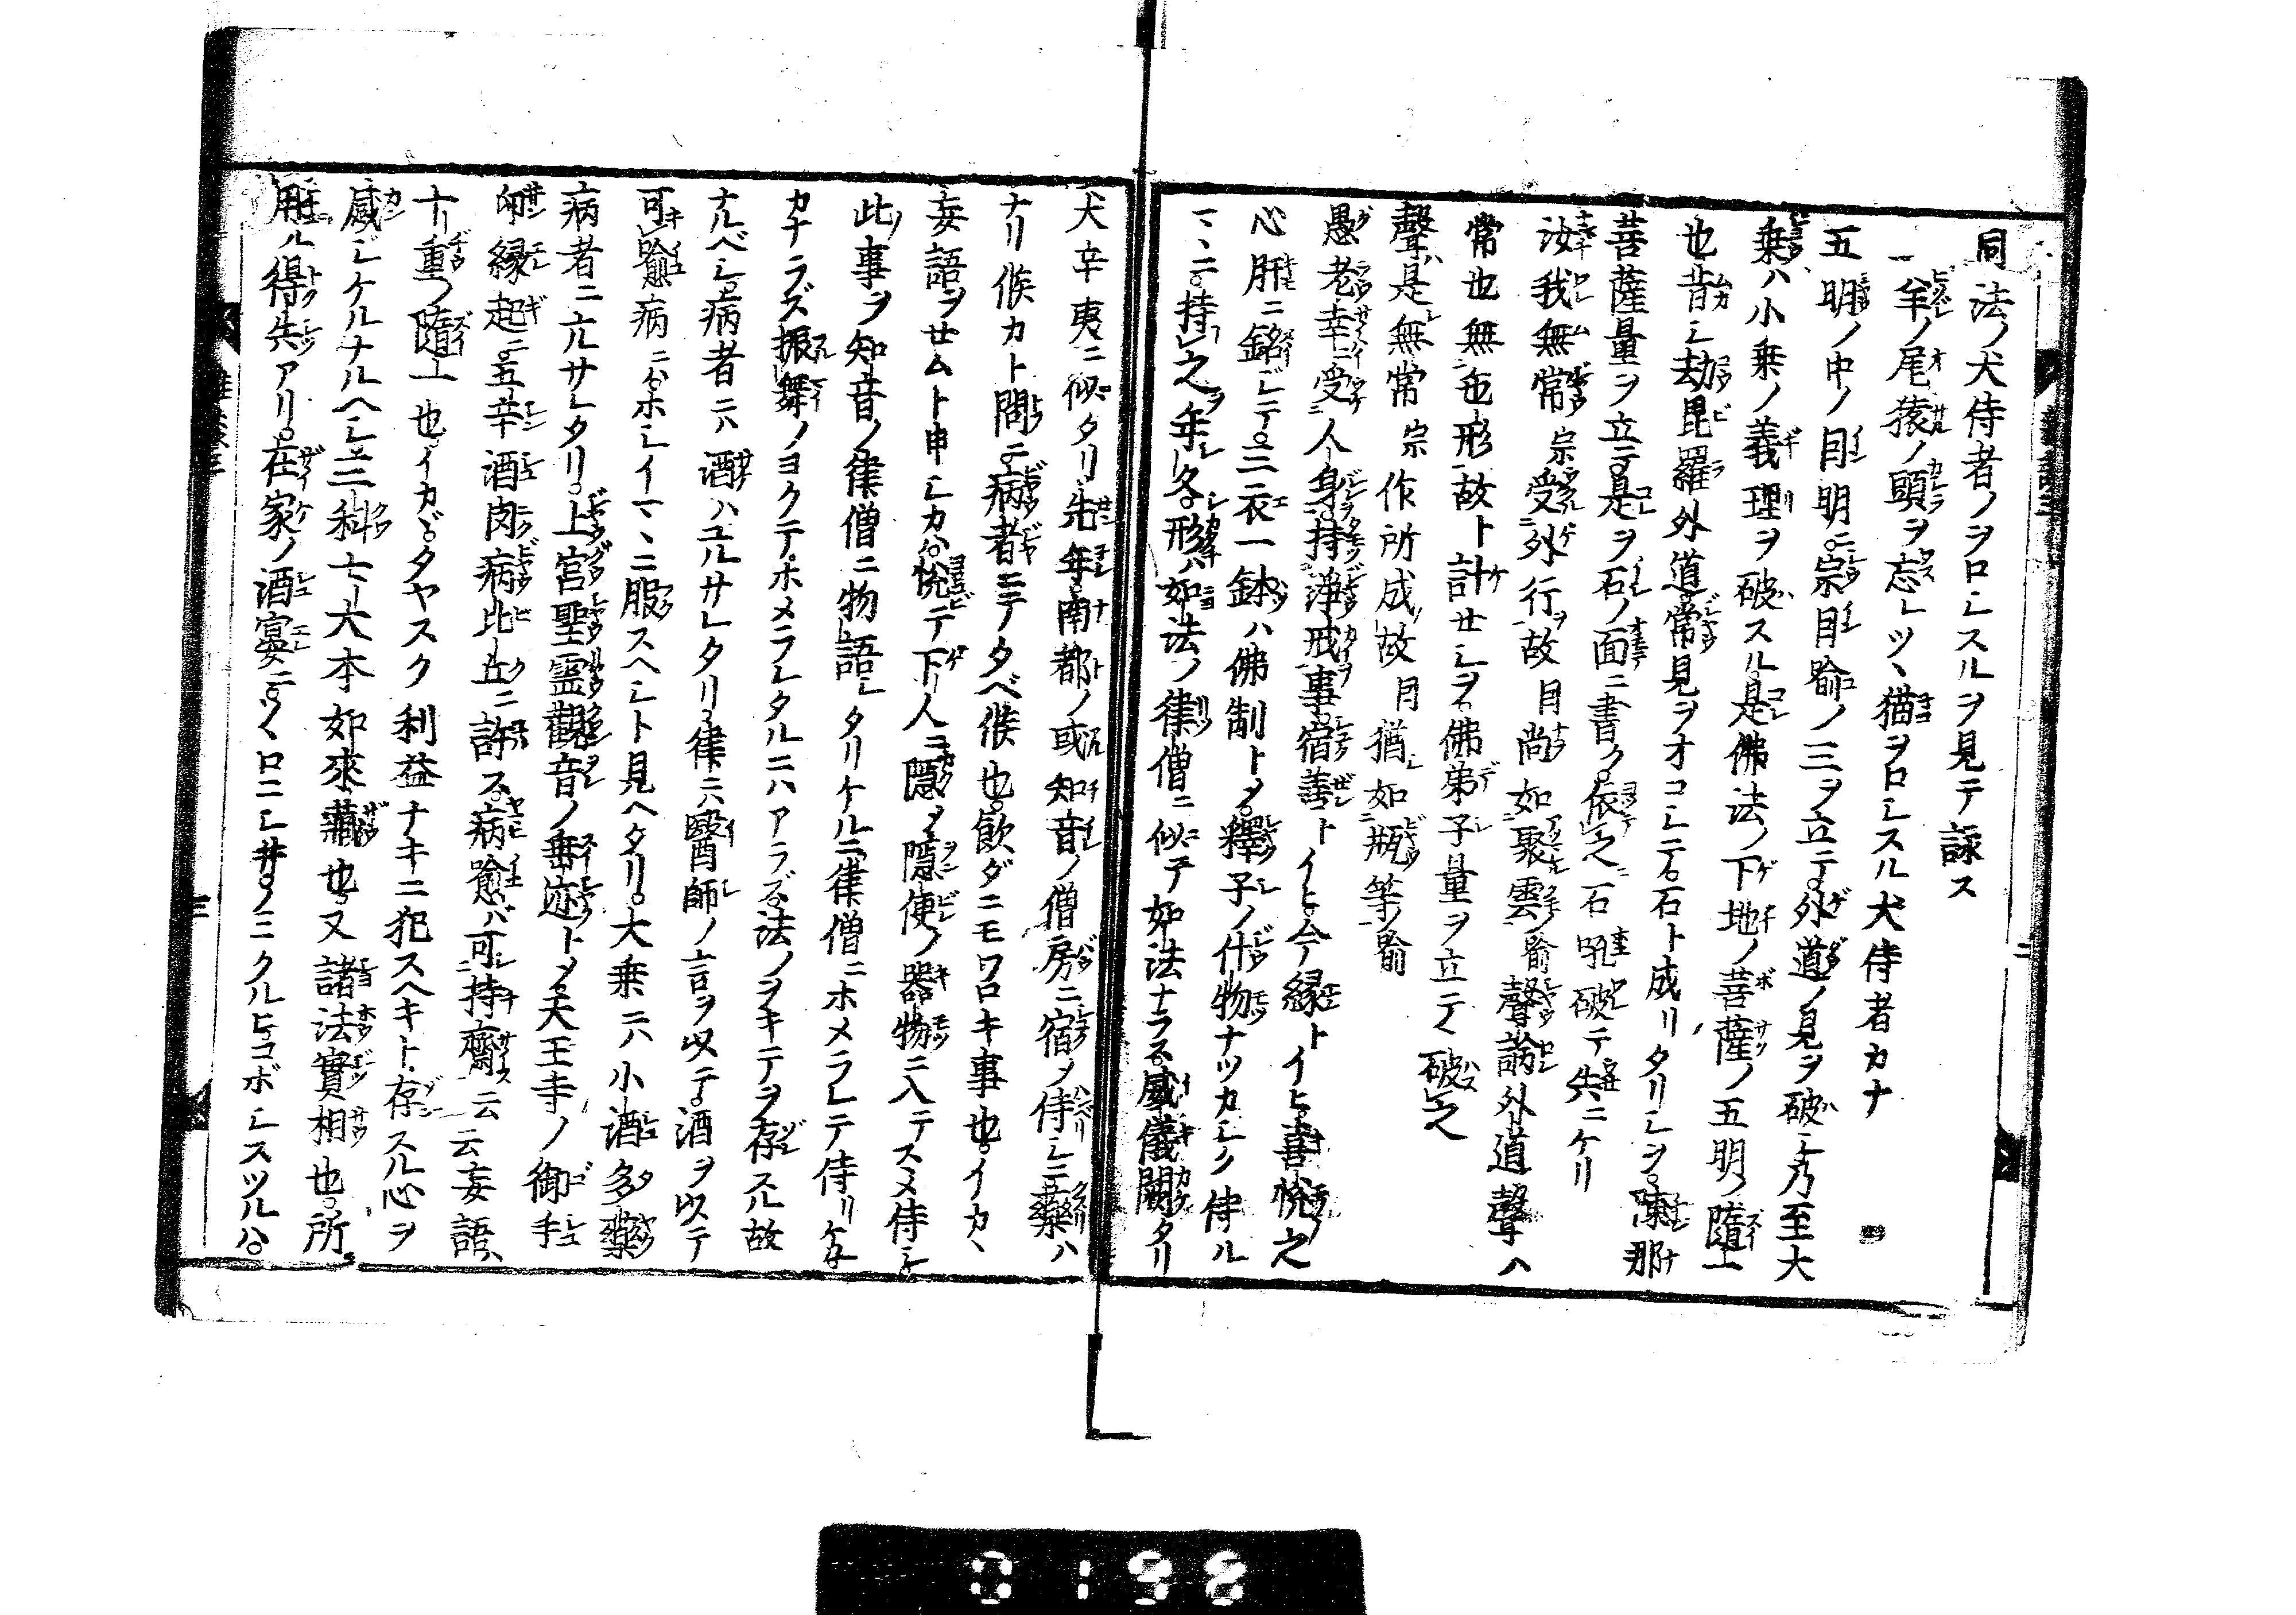 同法ノ犬侍者ノヲロシスルヲ見テ詠ス
羊ノ尾猿ノ頭ヲ忘レツヽ猫ヲロシスル犬侍者カナ
五明ノ中ノ因明ニ宗因喩ノ三ヲ立テ外道ノ見ヲ破シ乃至大
乗ハ小乗ノ義理ヲ破スル是佛法ノ下地ノ菩薩ノ五明ノ随一
也昔シ劫毘羅外道常見ヲオコシテ石ト成リタリシヲ陳那
菩薩量ヲ立テ是ヲ石ノ面ニ書ク依之石吼破テ失ニケリ
汝我無常宗受外行ヲ故因尚如聚雲喩聲論外道聲ハ
常也無色形故ト計セシヲ佛弟子量ヲ立テ破之
聲ハ是無常宗作所成故因猶如瓶等喩
愚老幸ニ受人身持浄戒事宿善トイヒ今縁トイヒ喜悦之
心肝ニ銘シテ三衣一鉢ハ佛制トメ釋子ノ什物ナツカシク侍ル
マヽニ持之年久形ハ如法ノ律僧ニ似テ如法ナラス威儀闕タリ
犬辛夷ニ似タリ先年南都ノ或知音ノ僧房ニ宿メ侍シニ薬ハ
ナリ候カト問ニ病者ニテタベ候也飲ダニモワロキ事也イカヽ
妄語ヲセムト申シカハ悦テ下人ニ隠メ隠便ノ器物ニ入テスヽメ侍シ
此事ヲ知音ノ律僧ニ物語シタリケルニ律僧ニホメラレテ侍リケル
カナラズ振舞ノヨクテホメラレタルニハアラズ法ノヲキテヲ存スル故
ナルベシ病者ニハ酒ハユルサレタリ律ニハ醫師ノ言ヲ以テ酒ヲ以テ
可愈病ニハホシイマヽニ服スヘシト見ヘタリ大乗ニハ小酒多薬
病者ニ亢サレタリ上宮聖霊觀音ノ垂迹トメ天王寺ノ御手
印縁起ニ五辛酒肉病比丘ニ許ス病愈バ可持齋云云妄語ハ
十重ノ随一也イカヾタヤスク利益ナキニ犯スヘキト存スル心ヲ
感シケルナルヘシ三科七大本如来藏也又諸法實相也所
用ル得失アリ在家ノ酒宴ニヲクロニシ井ノミクルヒコボシスツルハ